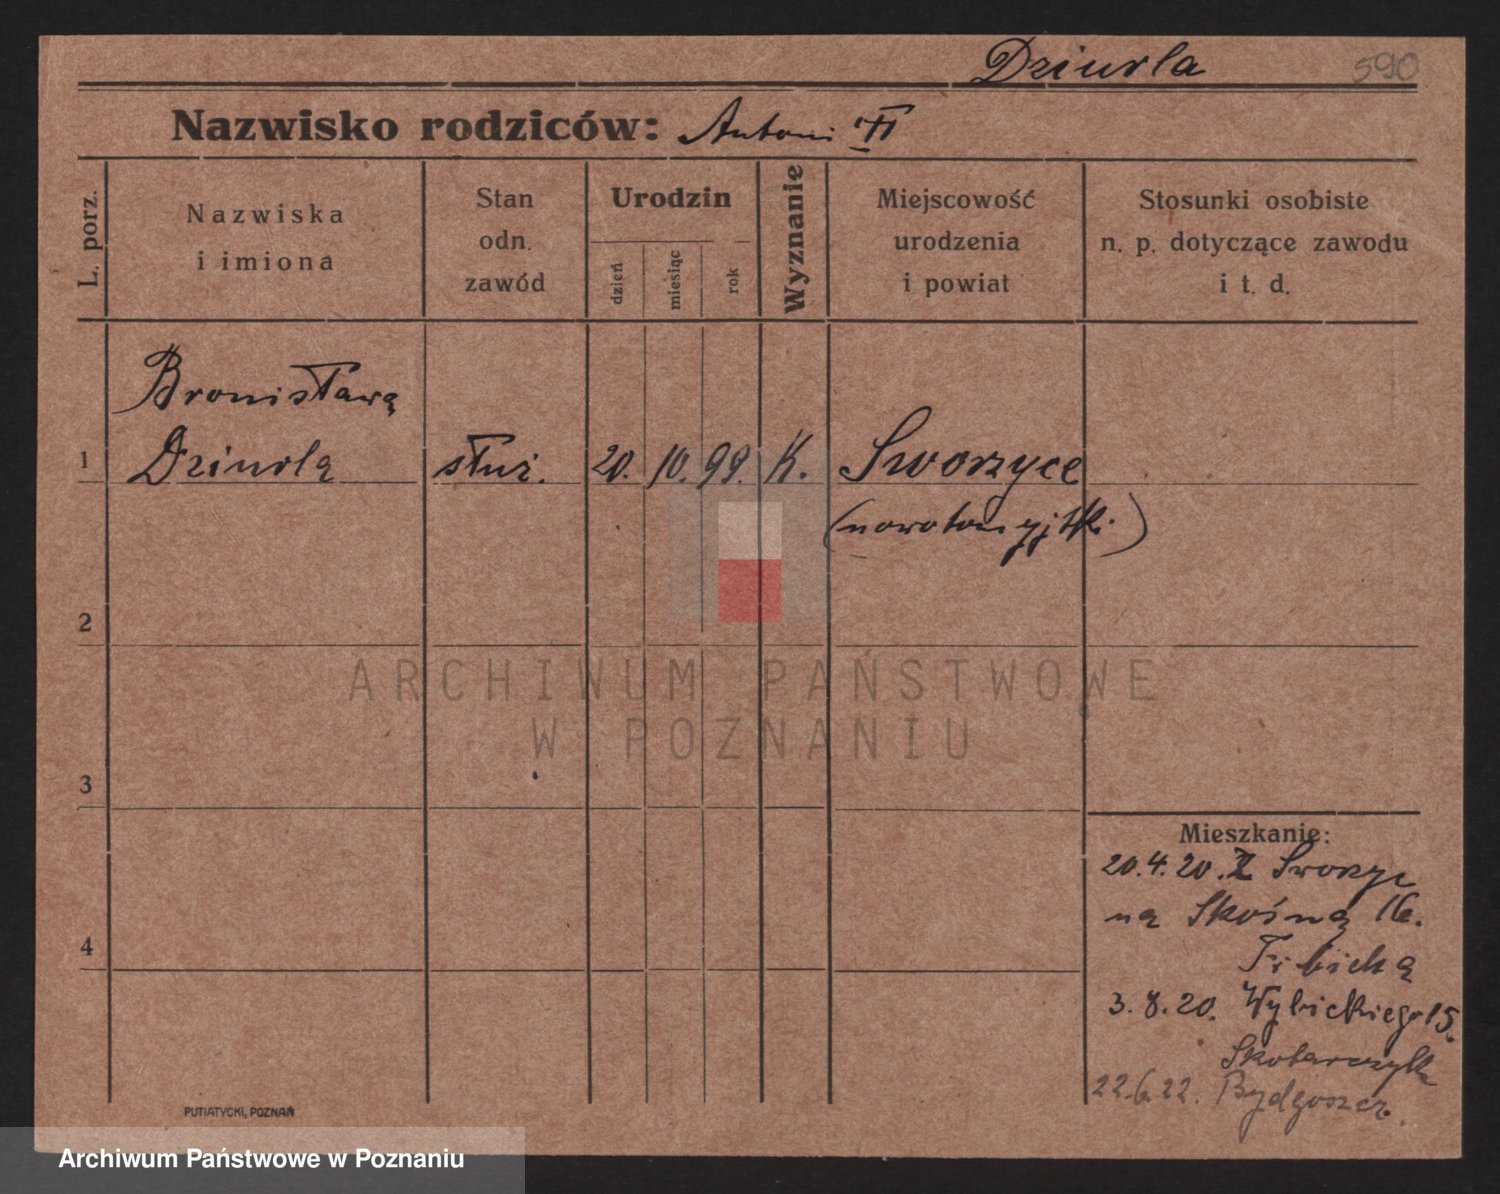 Dziurla 590
Nazwisko rodziców: Antoni
L. porz.
Nazwiska
i imiona
Stan
odn.
zawód
Urodzin
dzień
miesiąc
rok
Wyznanie
Miejscowość
urodzenia
i powiat
Stosunki osobiste
n. p. dotyczące zawodu
i t. d.
Bronisława
1 Dziurla służ. 20. 10. 99. K. Sworzyce
(nowotomyjsk.)
2
3
4
ARCHIWUM PAŃSTWOWE
W POZNANIU
Mieszkanie:
20.4.20. Z Sworzyc
na Skośna 16.
3.8.20. Wybickiego 15.
Skotarczyk
22.6.22. Bydgoszcz.
PUTIATYCKI, POZNAŃ
Archiwum Państwowe w Poznaniu